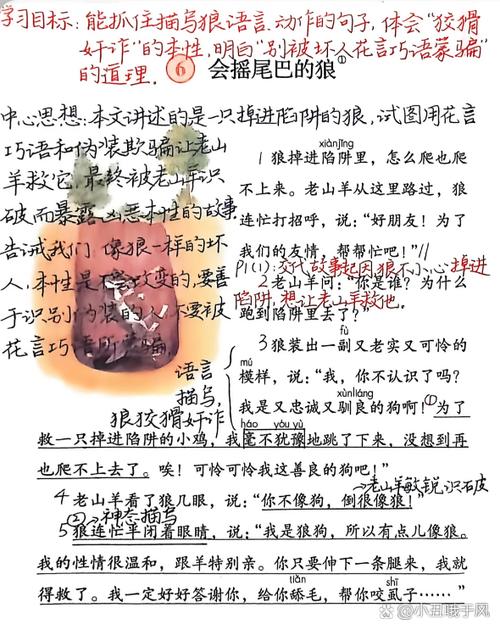 学习目标：能抓住描写狼语言.动作的句子，体会“狡猾
奸诈”的本性，明白“别被坏人花言巧语蒙骗”
的道理.
6 会摇尾巴的狼①
中心思想：本文讲述的是一只掉进陷阱的狼，试图用花言
巧语和伪装欺骗让老山
羊救它，最终被老山羊识
破而暴露凶恶本性的故事
告诫我们，像狼一样的坏
人，本性是不会改变的，要善
于识别伪装的人，不要被
花言巧语所蒙骗，
xiànjǐng
1 狼掉进陷阱里，怎么爬也爬
不上来。老山羊从这里路过，狼
连忙打招呼，说：“好朋友！为了
我们的友情，帮帮忙吧！”//
P1(1)：交代故事起因狼不小心掉进
陷阱，想让老山羊救他.
2 老山羊问：“你是谁？为什么
跑到陷阱里去了？”
fù
3 狼装出一副又老实又可怜的
mú
模样，说：“我，你不认识了吗？
xùnliáng
我是又忠诚又驯良的狗啊！①为了
语言
描写
狼狡猾奸诈
háo yóu yù
救一只掉进陷阱的小鸡，我毫不犹豫地跳了下来，没想到再
也爬不上去了。唉！可怜可怜我这善良的狗吧！”
老山羊敏锐，识破
4 老山羊看了狼几眼，说：“你不像狗，倒很像狼！”
②神态描写
5 狼连忙半闭着眼睛，说：“我是狼狗，所以有点儿像狼。
我的性情很温和，跟羊特别亲。你只要伸下一条腿来，我就
得救了。我一定好好答谢你，给你舔毛，帮你咬虱子……”
tiǎn
shī
小丑哦手风